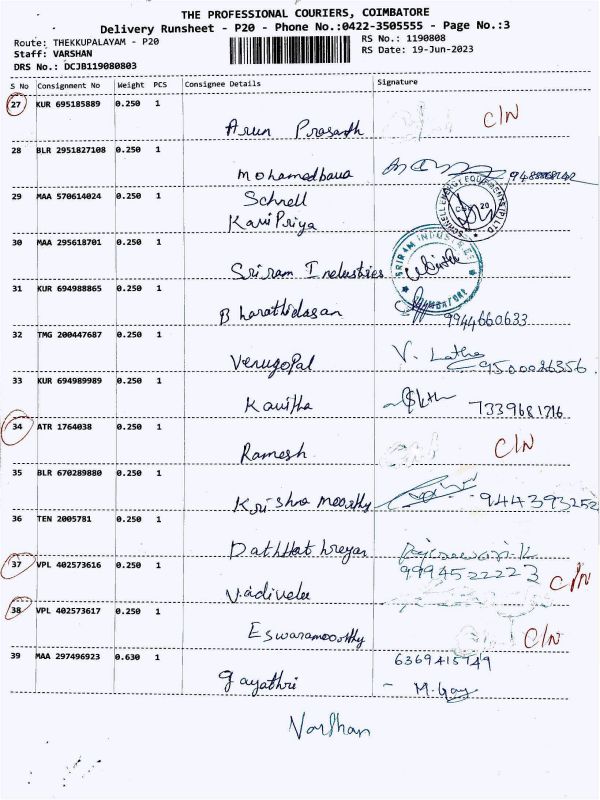 THE PROFESSIONAL COURIERS, COIMBATORE
Delivery Runsheet - P20 - Phone No.:0422-3505555 - Page No.:3
Route: THEKKUPALAYAM - P20 RS No.: 1190808
Staff: VARSHAN RS Date: 19-Jun-2023
DRS No.: DCJB119080803
S No Consignment No Weight PCS Consignee Details Signature
27 KUR 695185889 0.250 1 Arun Prasath C/N
28 BLR 2951827108 0.250 1 Mohamedbava
29 MAA 570614024 0.250 1 Schnell
KaviPriya
30 MAA 295618701 0.250 1 Sriram Industries
SRIRAM INDUSTRIES COIMBATORE
31 KUR 694988865 0.250 1 Bharathidasan 9944660633
32 TMG 200447687 0.250 1 Venugopal V. Latha 9500026356
33 KUR 694989989 0.250 1 Kavitha 7339681716
34 ATR 1764038 0.250 1 Ramesh C/N
35 BLR 670289880 0.250 1 Krishna moorthy 944393252
36 TEN 2005781 0.250 1 Dathhathreyan
37 VPL 402573616 0.250 1 Vadivelu 9994522223 C/N
38 VPL 402573617 0.250 1 Eswaramoorthy C/N
39 MAA 297496923 0.630 1 Gayathri 6369415749
M.Gay
Varshan